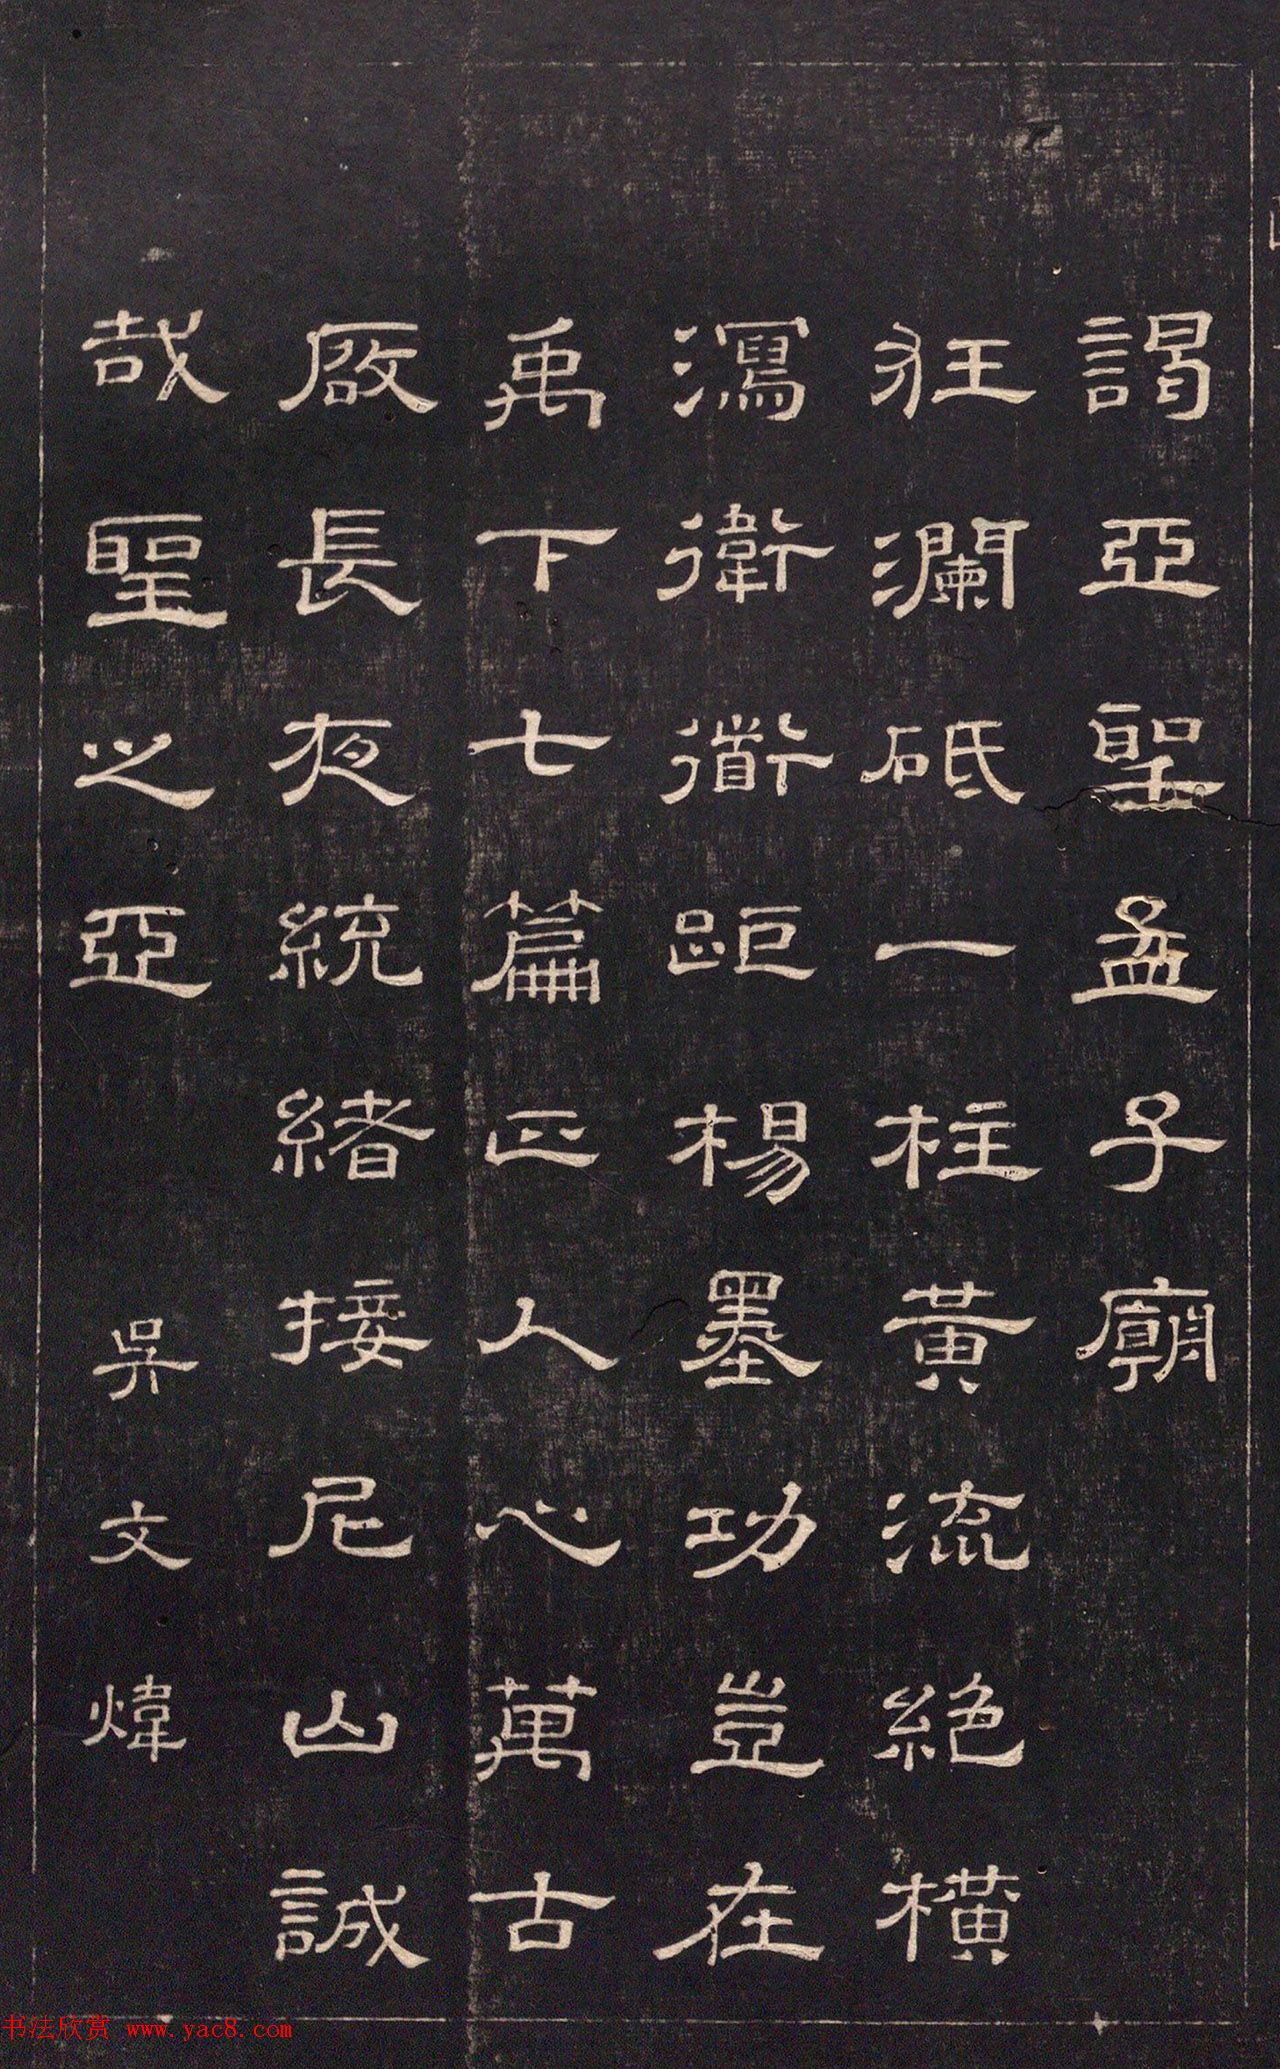 謁亞聖孟子廟
狂瀾砥一柱黃流絕橫
瀉衛衟距楊墨功豈在
禹下七篇正人心萬古
啟長夜統緒接尼山誠
哉聖之亞
吳文煒
书法欣赏 www.yac8.com